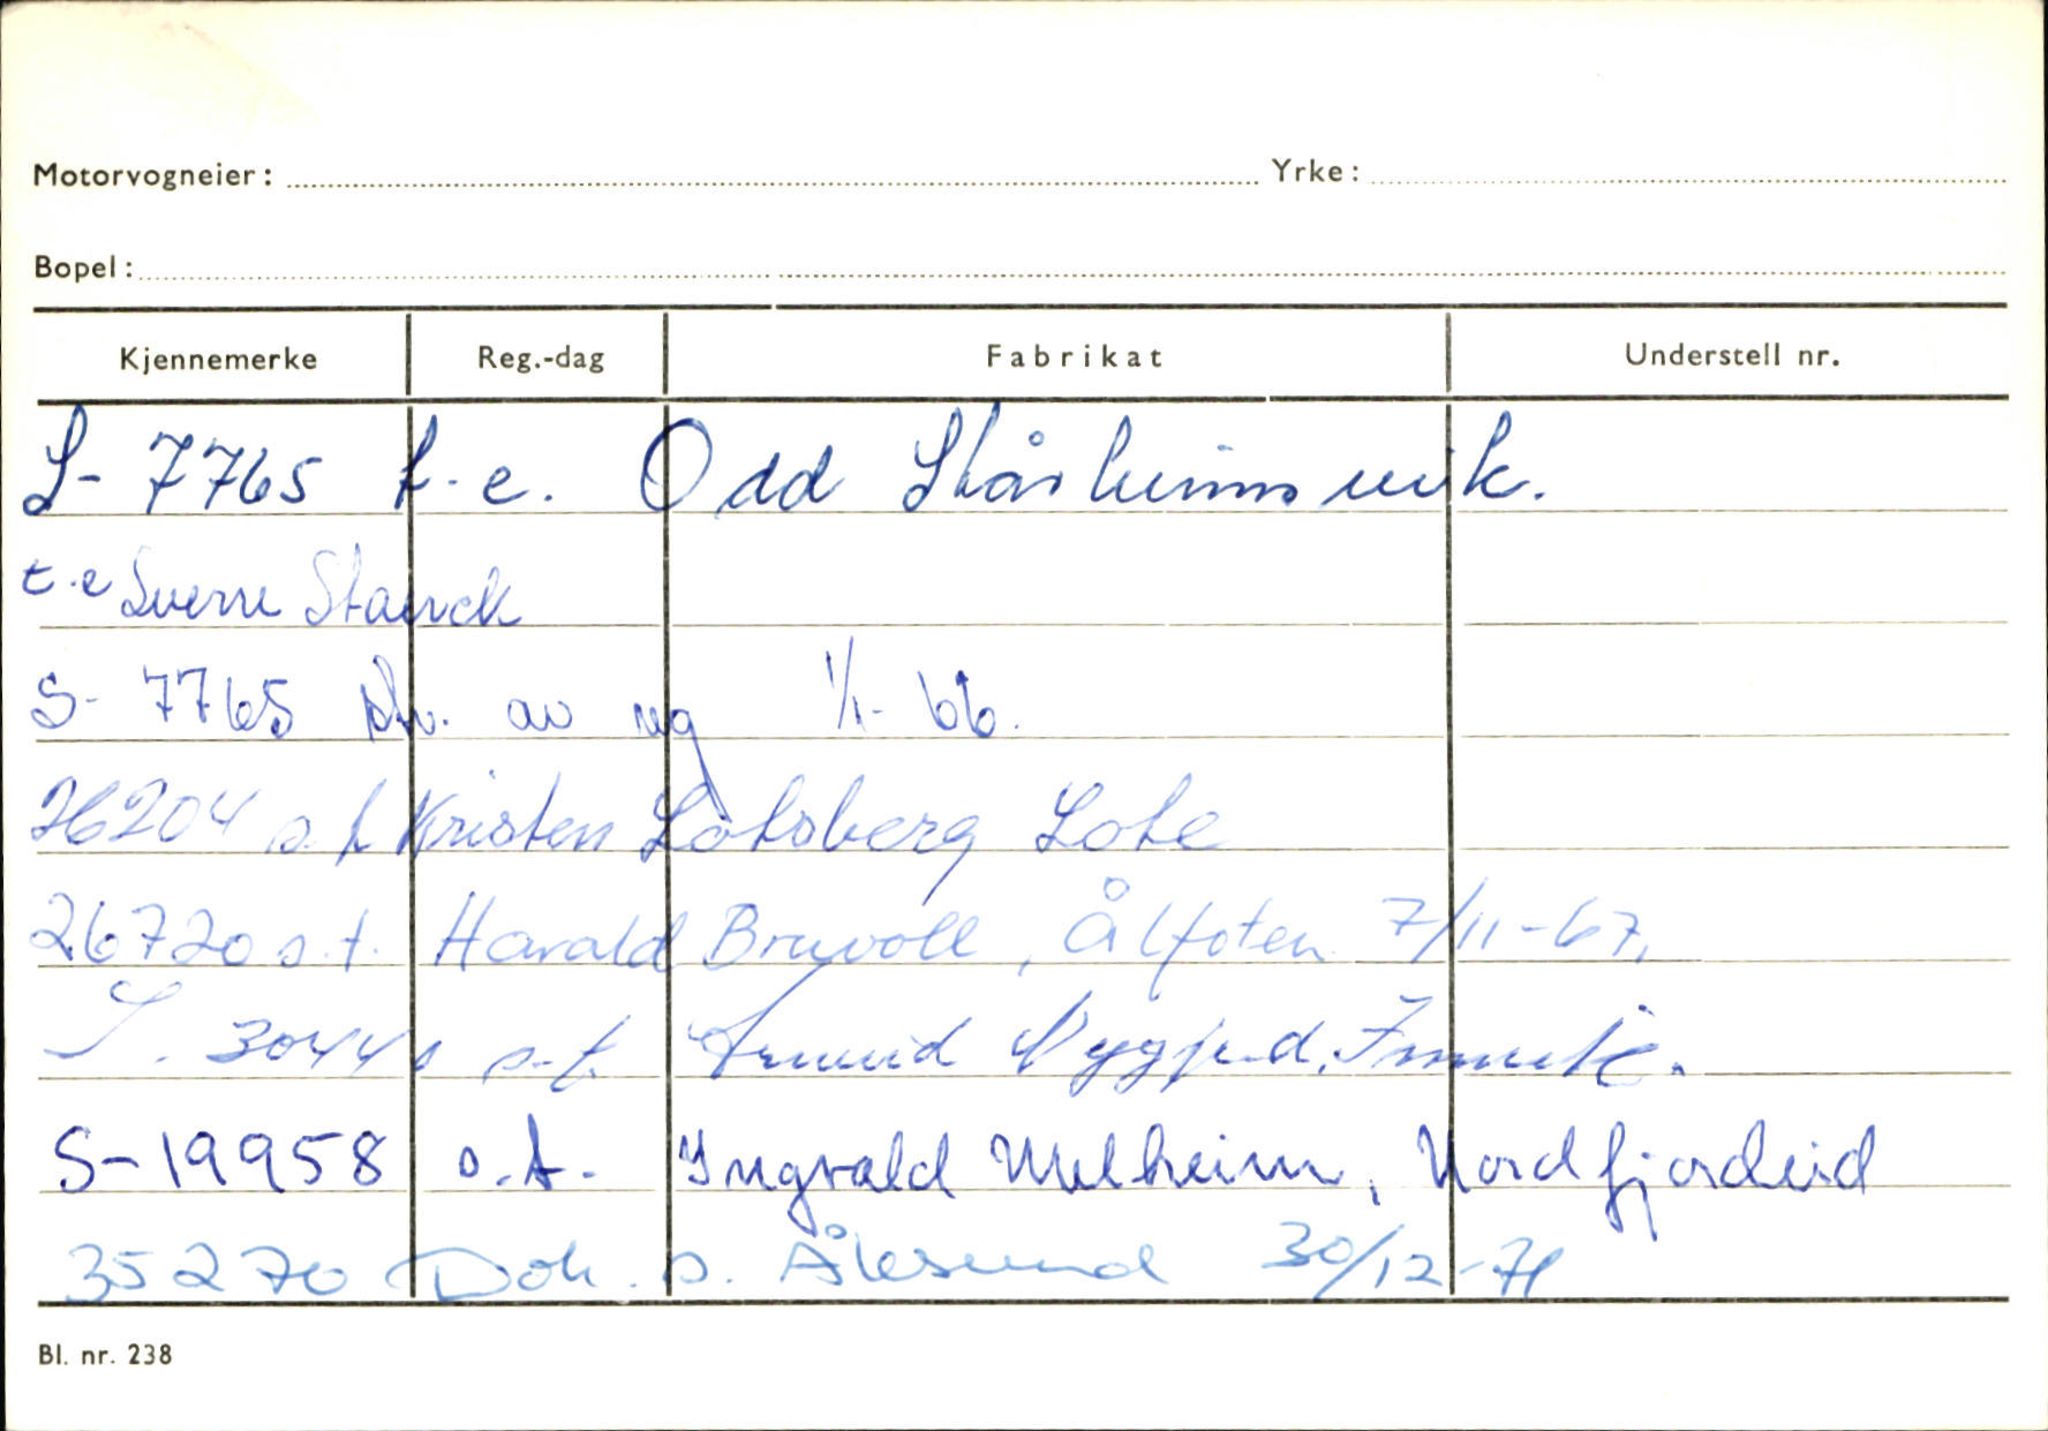 Motorvogneier: Yrke:
Bopel:
Kjennemerke Reg.-dag Fabrikat Understell nr.
S- 7765 t.e. Odd Stårheimsvik.
t.e Sverre Starck
S- 7765 av reg 1/1- 66.
26204 s.t Kristen Lotsberg Lote
26720 s.t. Harald Bruvoll, Ålfoten 7/11-67.
S. 30440 s.t. Innvik.
S-19958 s.t. Ingvald Melheim, Nordfjordeid
35270 s. Ålesund 30/12-71
Bl. nr. 238